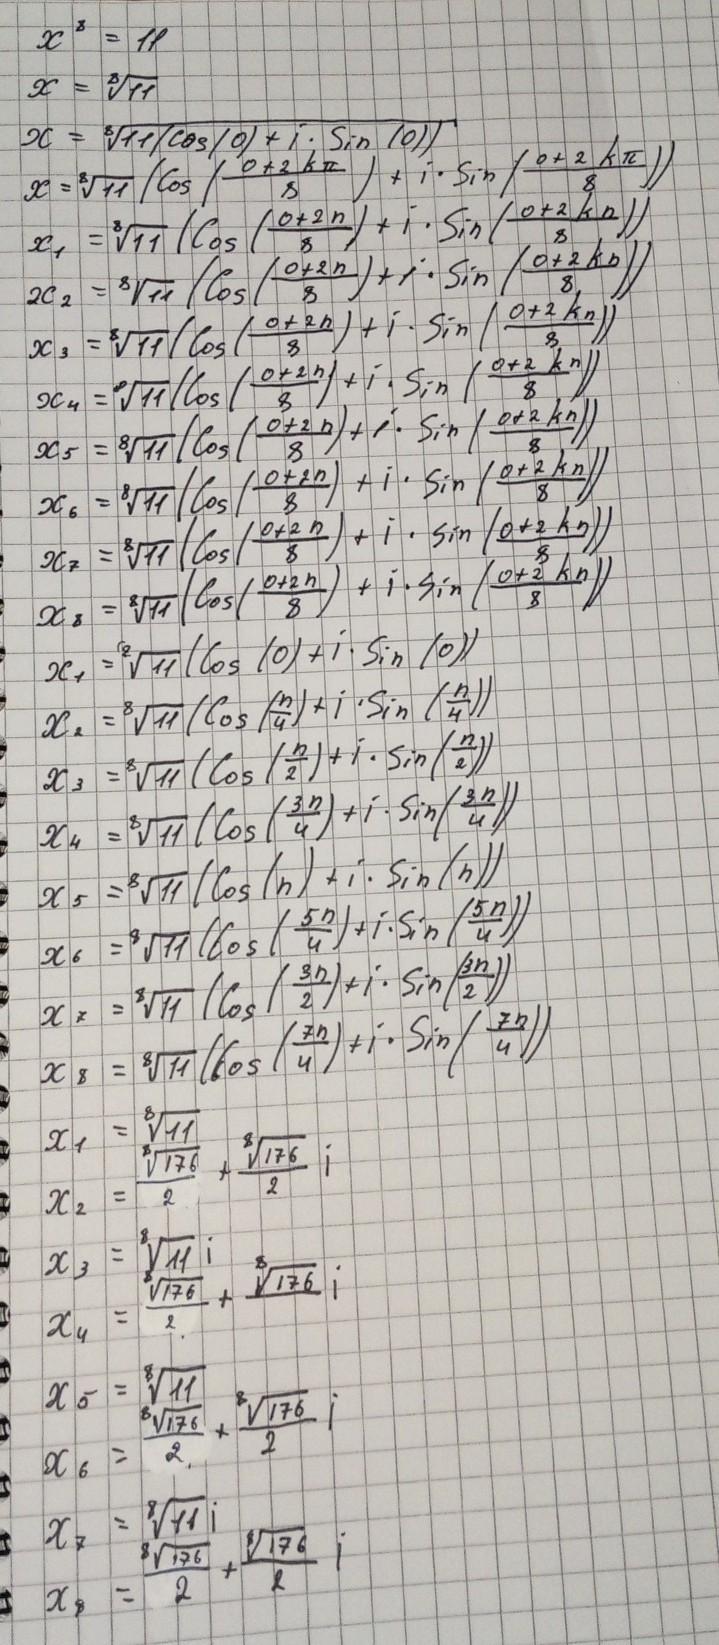 x⁸ = 11
x = ⁸√11
x = ⁸√(11(cos(0) + i · Sin (0)))
x = ⁸√11 (Cos ((0+2kπ)/8) + i · Sin ((0+2kπ)/8))
x₁ = ⁸√11 (Cos ((0+2n)/8) + i · Sin ((0+2kn)/8))
x₂ = ⁸√11 (Cos ((0+2n)/8) + i · Sin ((0+2kn)/8))
x₃ = ⁸√11 (Cos ((0+2n)/8) + i · Sin ((0+2kn)/8))
x₄ = ⁸√11 (Cos ((0+2n)/8) + i · Sin ((0+2kn)/8))
x₅ = ⁸√11 (Cos ((0+2n)/8) + i · Sin ((0+2kn)/8))
x₆ = ⁸√11 (Cos ((0+2n)/8) + i · Sin ((0+2kn)/8))
x₇ = ⁸√11 (Cos ((0+2n)/8) + i · sin ((0+2kn)/8))
x₈ = ⁸√11 (Cos ((0+2n)/8) + i · Sin ((0+2kn)/8))
x₁ = ⁸√11 (Cos (0) + i · Sin (0))
x₂ = ⁸√11 (Cos (n/4) + i · Sin (n/4))
x₃ = ⁸√11 (Cos (n/2) + i · Sin (n/2))
x₄ = ⁸√11 (Cos (3n/4) + i · Sin (3n/4))
x₅ = ⁸√11 (Cos (n) + i · Sin (n))
x₆ = ⁸√11 (Cos (5n/4) + i · Sin (5n/4))
x₇ = ⁸√11 (Cos (3n/2) + i · Sin (3n/2))
x₈ = ⁸√11 (Cos (7n/4) + i · Sin (7n/4))
x₁ = ⁸√11
x₂ = ⁸√176/2 + ⁸√176/2 i
x₃ = ⁸√11 i
x₄ = ⁸√176/2 + ⁸√176 i
x₅ = ⁸√11
x₆ = ⁸√176/2 + ⁸√176/2 i
x₇ = ⁸√11 i
x₈ = ⁸√176/2 + ⁸√176/2 i